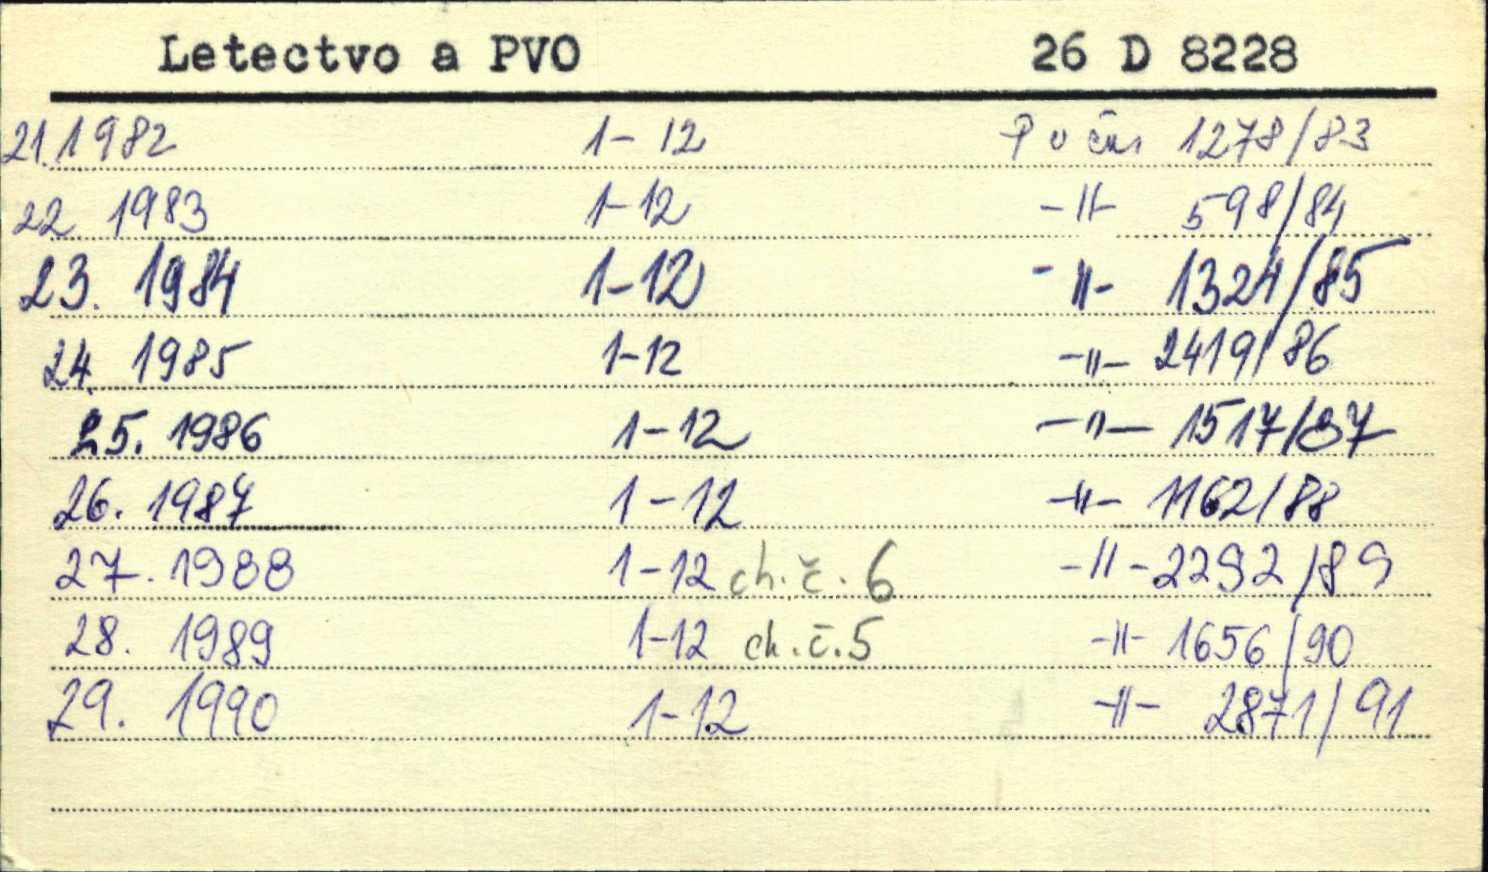 Letectvo a PVO 26 D 8228
21. 1982 1-12 P v čas 1278/83
22 1983 1-12 -11- 598/84
23. 1984 1-12 -11- 1324/85
24. 1985 1-12 -11- 2419/86
25. 1986 1-12 -11- 1517/87
26. 1987 1-12 -11- 1162/88
27. 1988 1-12 ch.č. 6 -11- 2292/89
28. 1989 1-12 ch.č.5 -11- 1656/90
29. 1990 1-12 -11- 2871/91